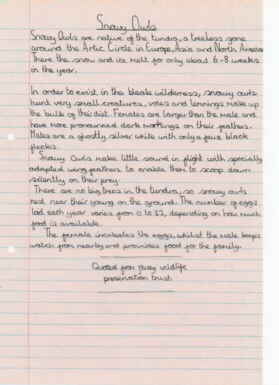 Snowy Owls
Snowy Owls are native of the tundra, a treeless zone
around the Artic Circle in Europe, Asia and North America
There the snow and ice melt for only about 6-8 weeks
in the year.
In order to exist in the bleak wilderness, snowy owls
hunt very small creatures, voles and lemmings make up
the bulk of the diet. Females are larger than the male and
have more pronounced dark markings on their feathers.
Males are a ghostly silver white with only a few black
flecks.
Snowy Owls make little sound in flight with specially
adapted wing feathers to enable them to scoop down
silently on their prey.
There are no big trees in the tundra, so snowy owls
nest near their young on the ground. The number of eggs
laid each year varies from 0 to 12, depending on how much
food is available.
The female incubates the eggs, whilst the male keeps
watch from nearby and provides food for the family.
Quoted from wildlife
preservation trust